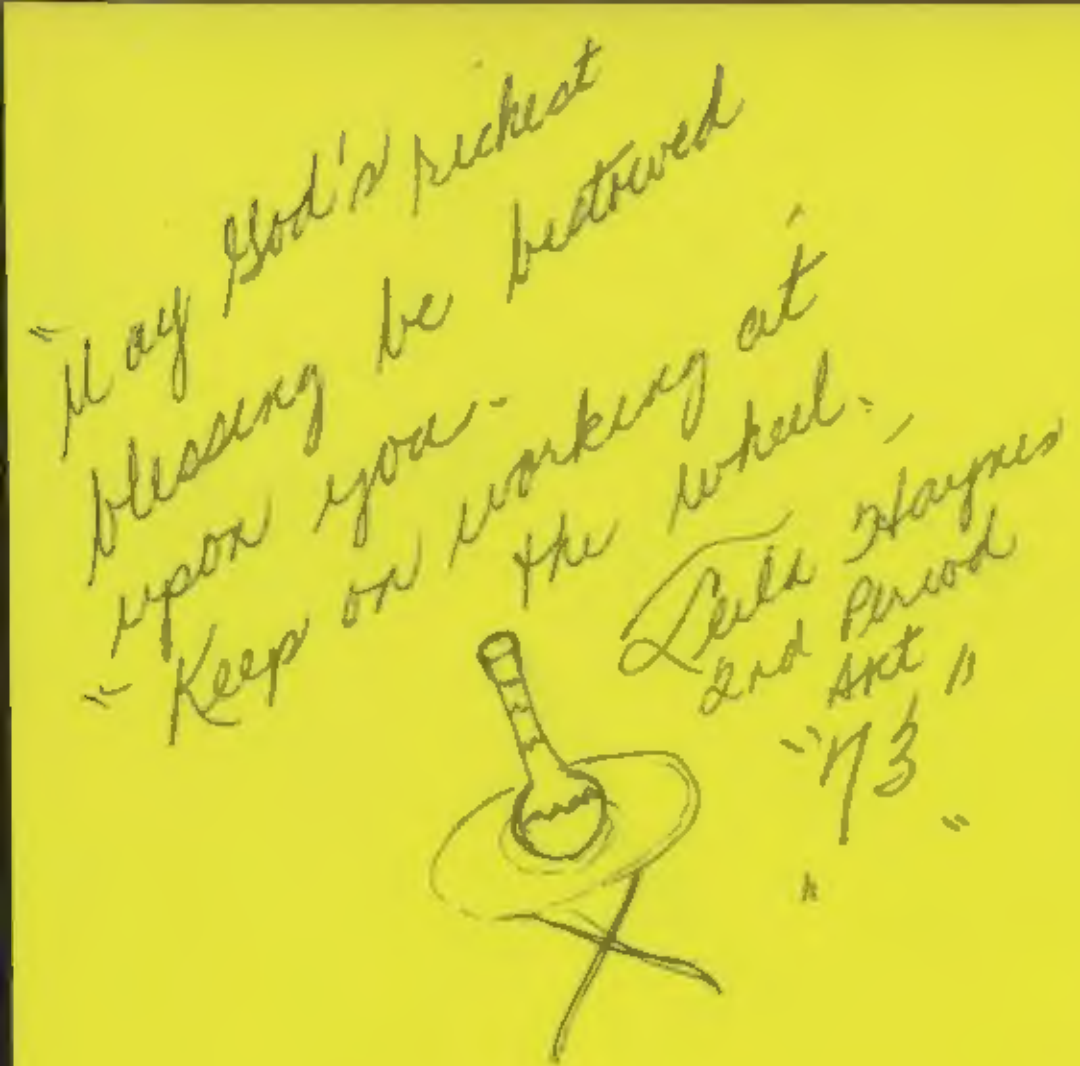 "May God's richest
blessing be bestowed
upon you.
"Keep on working at
the wheel."
Leila Haynes
2nd Period
Art
"73"